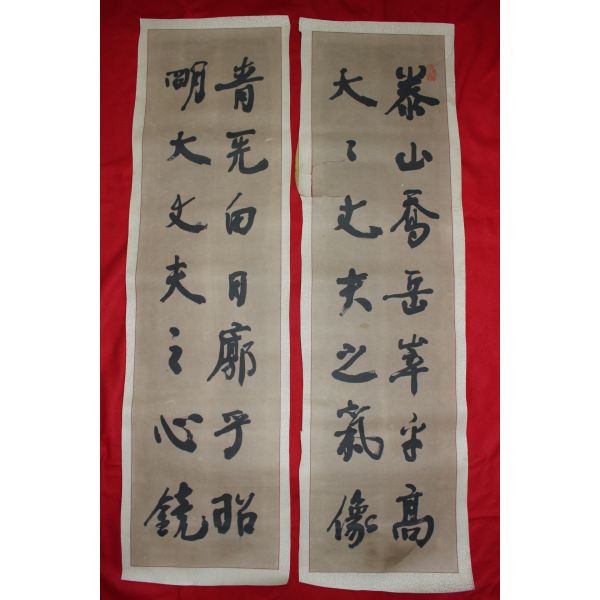 泰山喬岳崒乎高
大〻丈夫之氣像
靑天白日廓乎昭
明大丈夫之心鏡